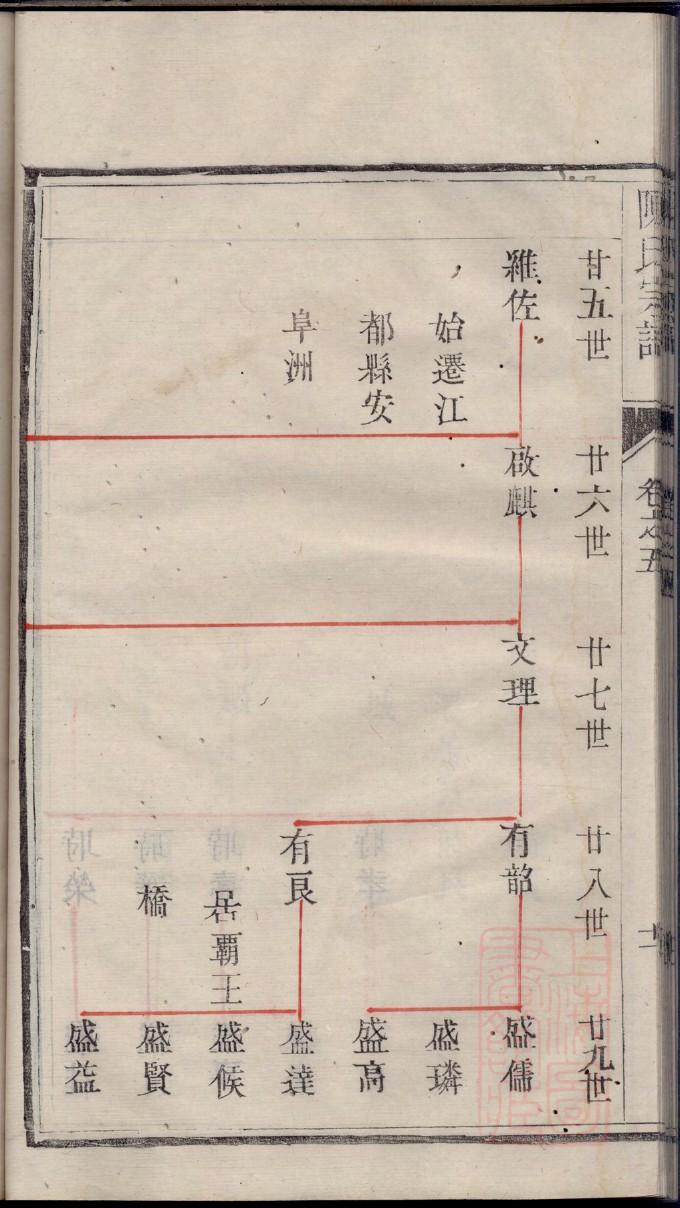 陳氏宗譜
卷之五
十一
廿五世
廿六世
廿七世
廿八世
廿九世
雜佐
啟麒
文理
有韶
盛儒
始遷江
盛璘
都縣安
盛高
阜洲
有良
盛達
居霸王
盛候
橋
盛賢
盛益